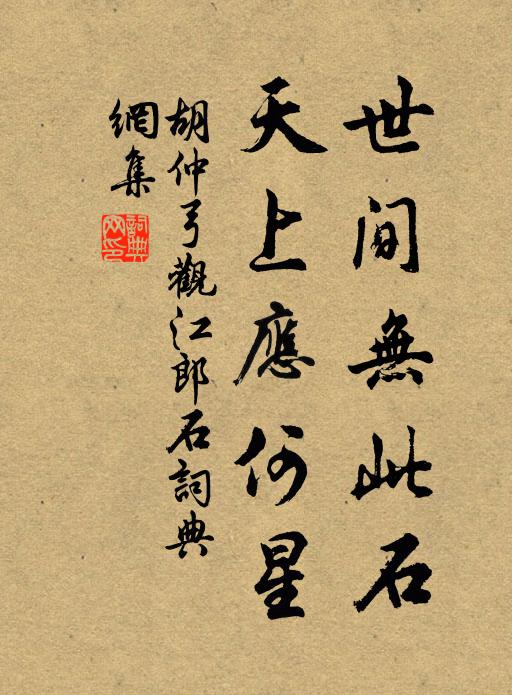 世間無此石
天上應何星
胡仲弓觀江郎石詞典
網集
詞典
网印